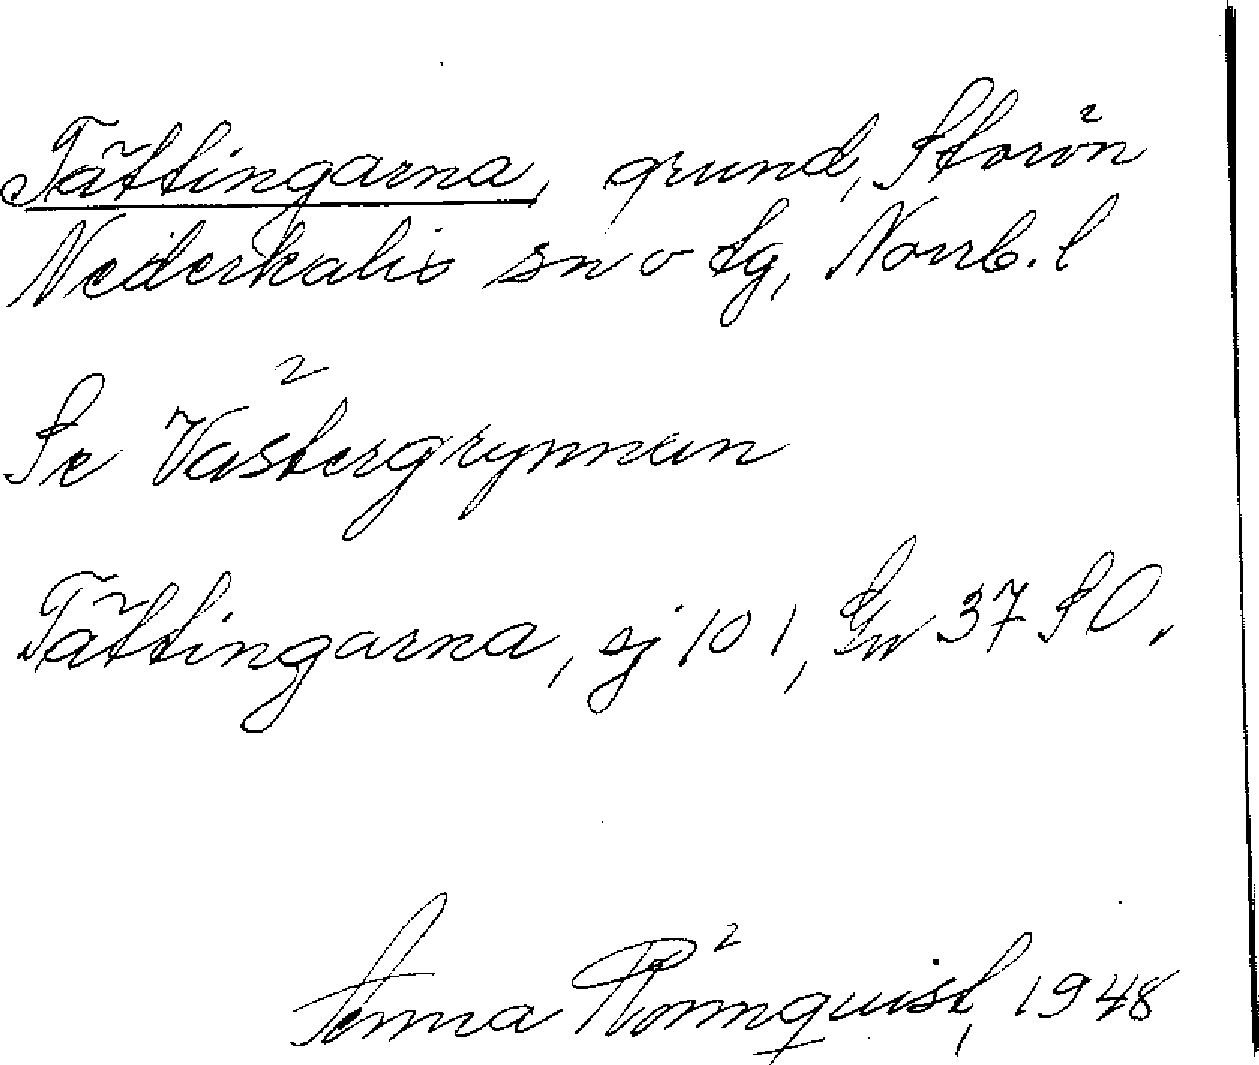 Tättingarna, grund, Storön
Nederkalix sn o tg, Norrb. l
Se Västergrynnan
Tättingarna, ej 101, Gw 37 SO.
Anna Rönnquist, 1948